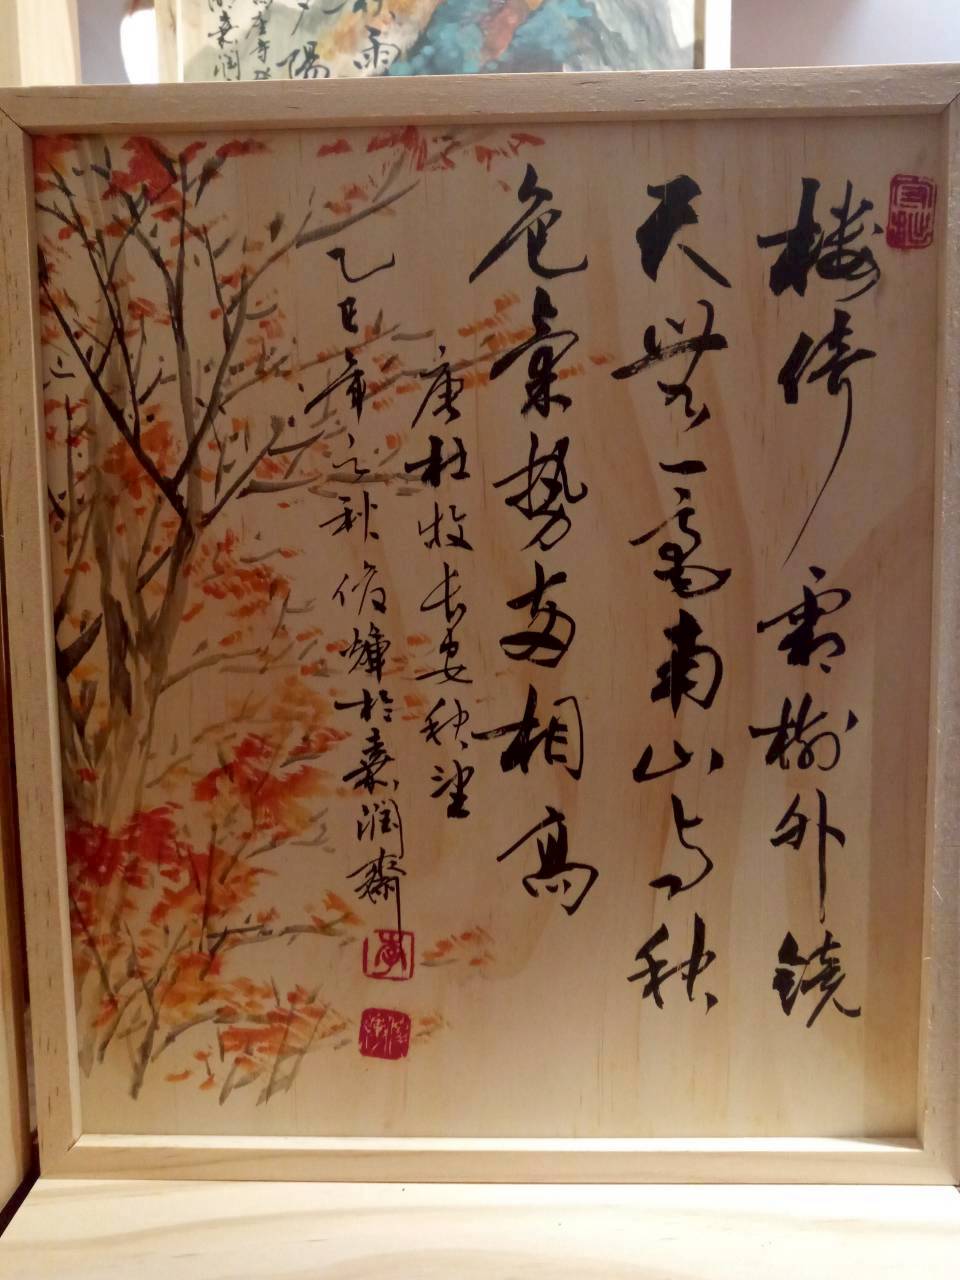 楼倚霜树外镜
天无一毫南山与秋
色气势两相高
唐杜牧长安秋望
乙巳年之秋俊炜於熹润斋
雨
阳